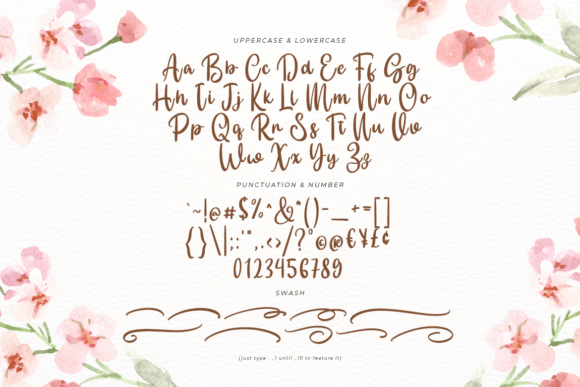 UPPERCASE & LOWERCASE
Aa Bb Cc Dd Ee Ff Gg
Hh Ii Jj Kk Ll Mm Nn Oo
Pp Qq Rr Ss Tt Uu Vv
Ww Xx Yy Zz
PUNCTUATION & NUMBER
`~!@#$%^&*()-_+=[]
{}\|;:'",.<>/?°©®€¥£¢
0123456789
SWASH
(just type : _1 until _10 to feature it)